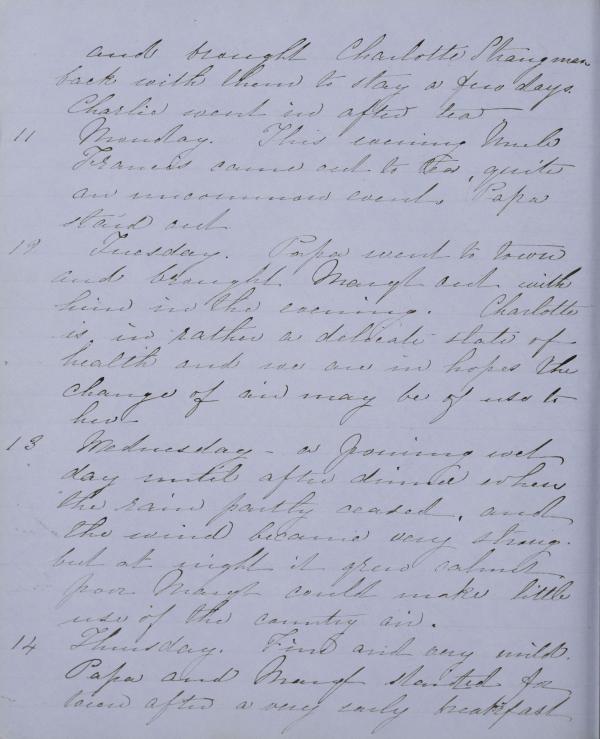 and brought Charlotte Strangman
back with them to stay a few days.
Charlie went in after tea
11 Monday. This evening Uncle
Francis came out to tea, quite
an uncommon event. Papa
staid out
12 Tuesday. Papa went to town
and brought Margt out with
him in the evening. Charlotte
is in rather a delicate state of
health and we are in hopes the
change of air may be of use to
her.
13 Wednesday - a pouring wet
day until after dinner when
the rain partly ceased, and
the wind became very strong.
but at night it grew calmer
poor Margt could make little
use of the country air.
14 Thursday. Fine and very mild.
Papa and Margt started for
town after a very early breakfast